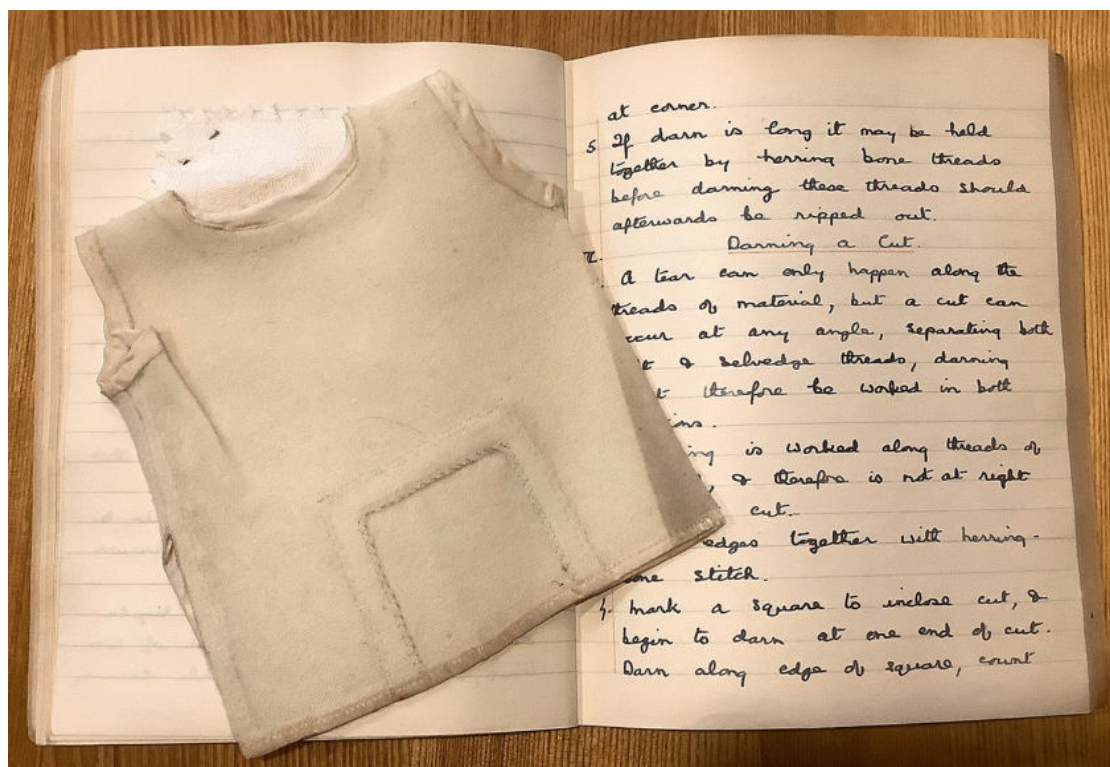 at corner.
5 If darn is long it may be held
together by herring bone threads
before darning these threads should
afterwards be ripped out.
Darning a Cut.
A tear can only happen along the
threads of material, but a cut can
occur at any angle, separating both
& selvedge threads, darning
therefore be worked in both
is worked along threads of
, & therefore is not at right
cut.
edges together with herring-
bone stitch.
mark a square to inclose cut, &
begin to darn at one end of cut.
Darn along edge of square, count